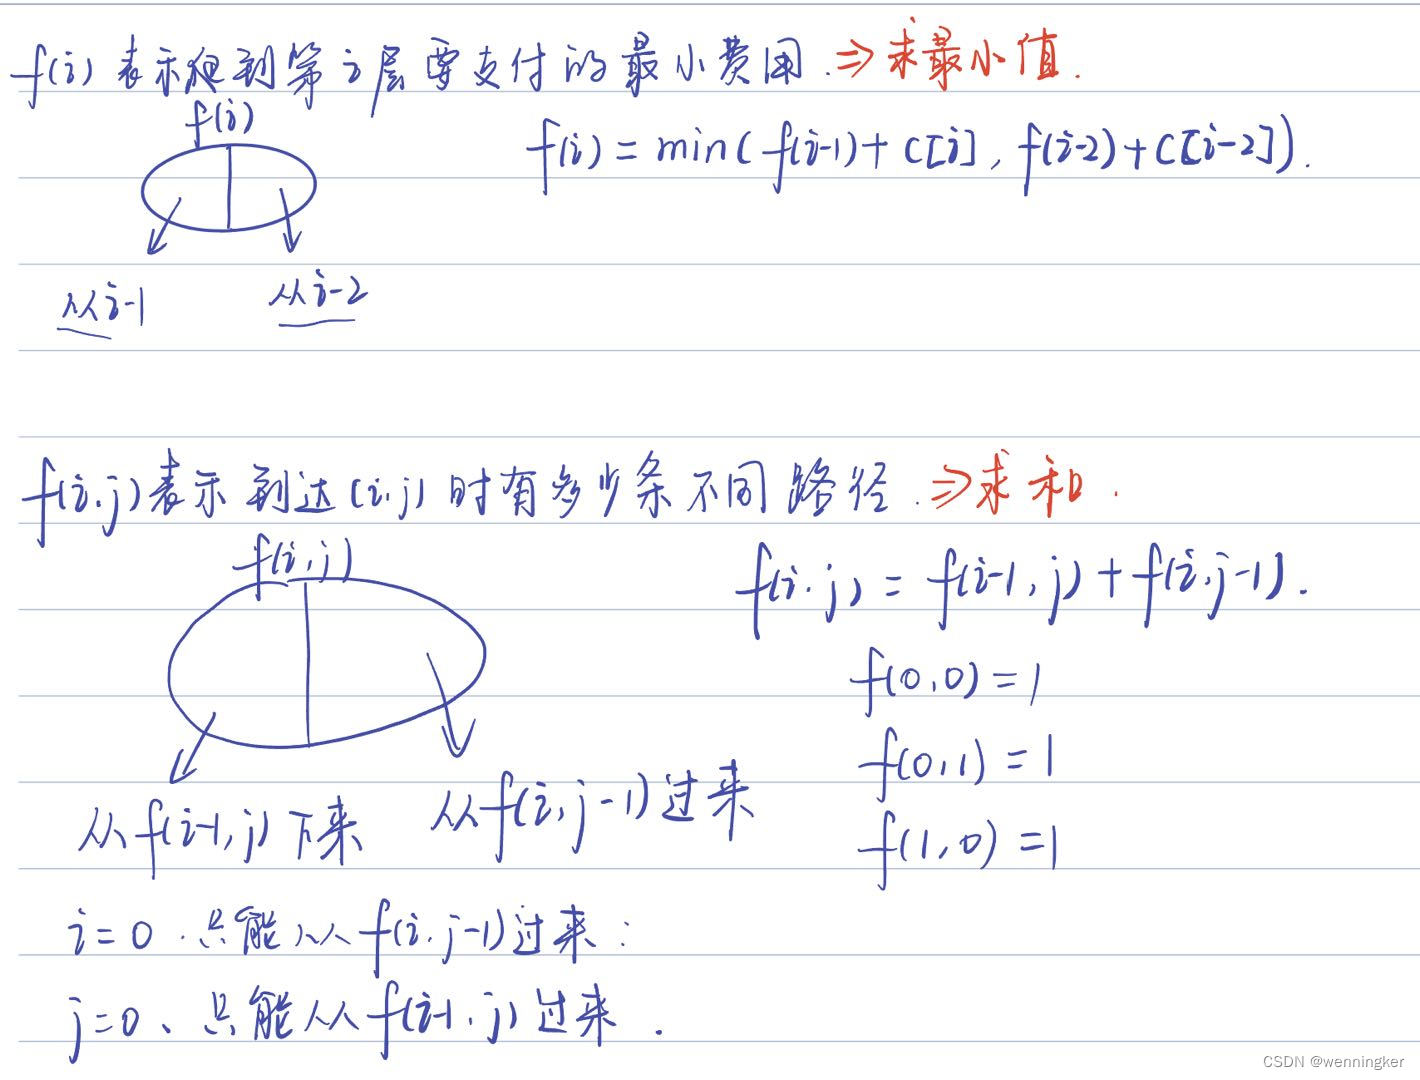 f(i) 表示爬到第i层要支付的最小费用. ⇒求最小值.
f(i)
f(i) = min( f(i-1)+ C[i], f(i-2)+C[i-2]).
从i-1
从i-2
f(i,j)表示到达(i,j)时有多少条不同路径. ⇒求和.
f(i,j)
f(i,j) = f(i-1,j)+f(i,j-1).
f(0,0)=1
f(0,1)=1
f(1,0)=1
从f(i-1,j)下来
从f(i,j-1)过来
i=0.只能从f(i,j-1)过来;
j=0、只能从f(i-1,j)过来.
CSDN @wenningker